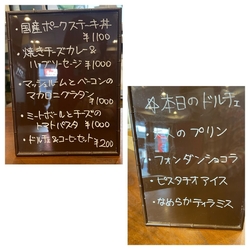 ・国産ポークステーキ丼
¥1100
・焼きチーズカレー&
ハーブソーセージ ¥1000
・マッシュルームとベーコンの
マカロニグラタン
¥1000
・ミートボールとチーズの
トマトパスタ ¥1000
・ドルチェ&コーヒーセット
¥200
本日のドルチェ
のプリン
・フォンダンショコラ
・ピスタチオアイス
・なめらかティラミス